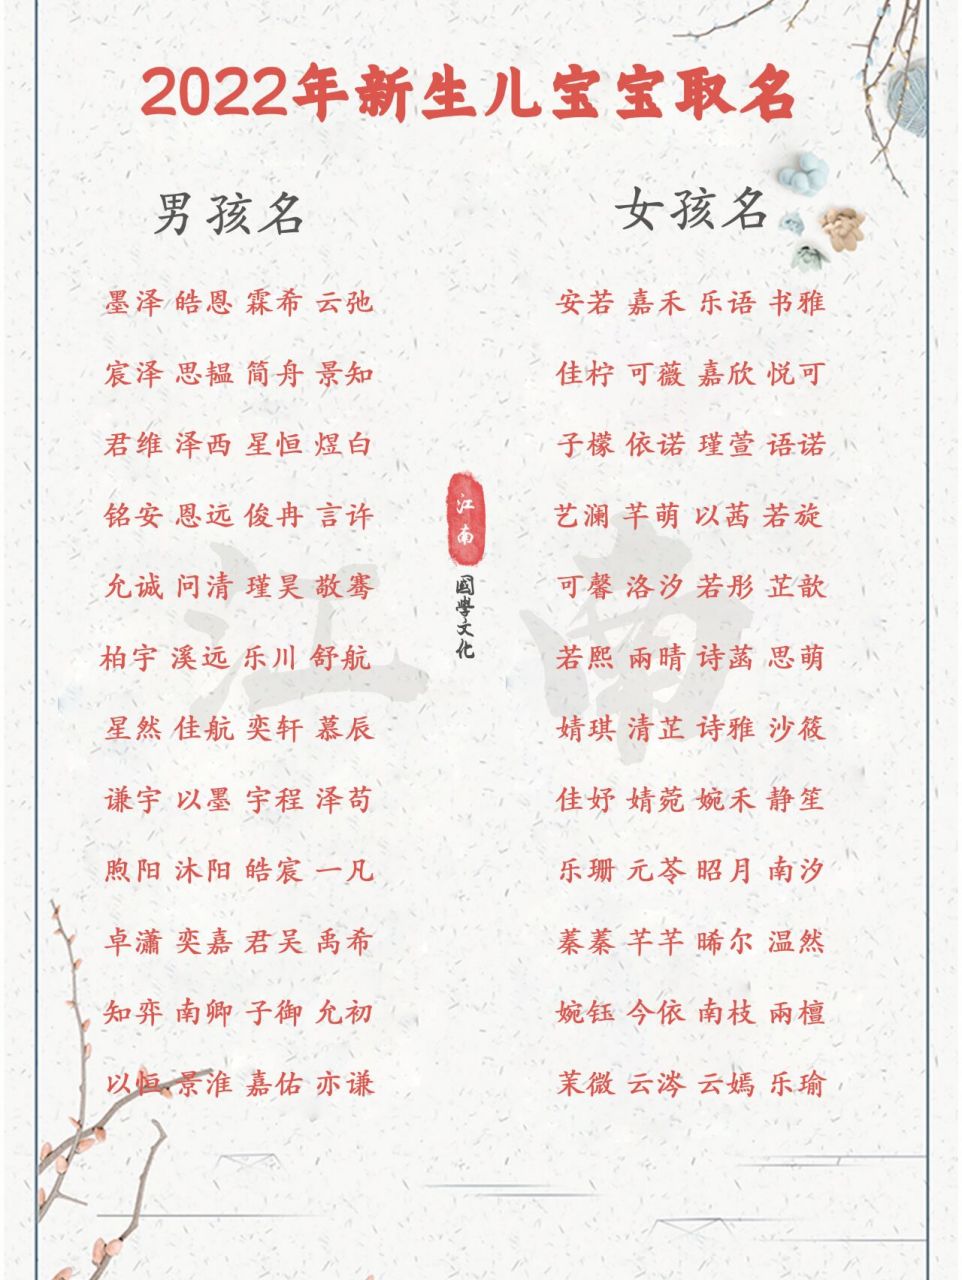 2022年新生儿宝宝取名
男孩名
墨泽 皓恩 霖希 云弛
宸泽 思韫 简舟 景知
君维 泽西 星恒 煜白
铭安 恩远 俊冉 言许
允诚 问清 瑾昊 敬骞
柏宇 溪远 乐川 舒航
星然 佳航 奕轩 慕辰
谦宇 以墨 宇程 泽苟
煦阳 沐阳 皓宸 一凡
卓潇 奕嘉 君吴 禹希
知弈 南卿 子御 允初
以恒 景淮 嘉佑 亦谦
女孩名
安若 嘉禾 乐语 书雅
佳柠 可薇 嘉欣 悦可
子檬 依诺 瑾萱 语诺
艺澜 芊萌 以茜 若旋
可馨 洛汐 若彤 芷歆
若熙 兩晴 诗菡 思萌
婧琪 清芷 诗雅 沙筱
佳妤 婧菀 婉禾 静笙
乐珊 元苓 昭月 南汐
蓁蓁 芊芊 晞尔 温然
婉钰 今依 南枝 兩檀
茉微 云涔 云嫣 乐瑜
江南
國學文化
江南